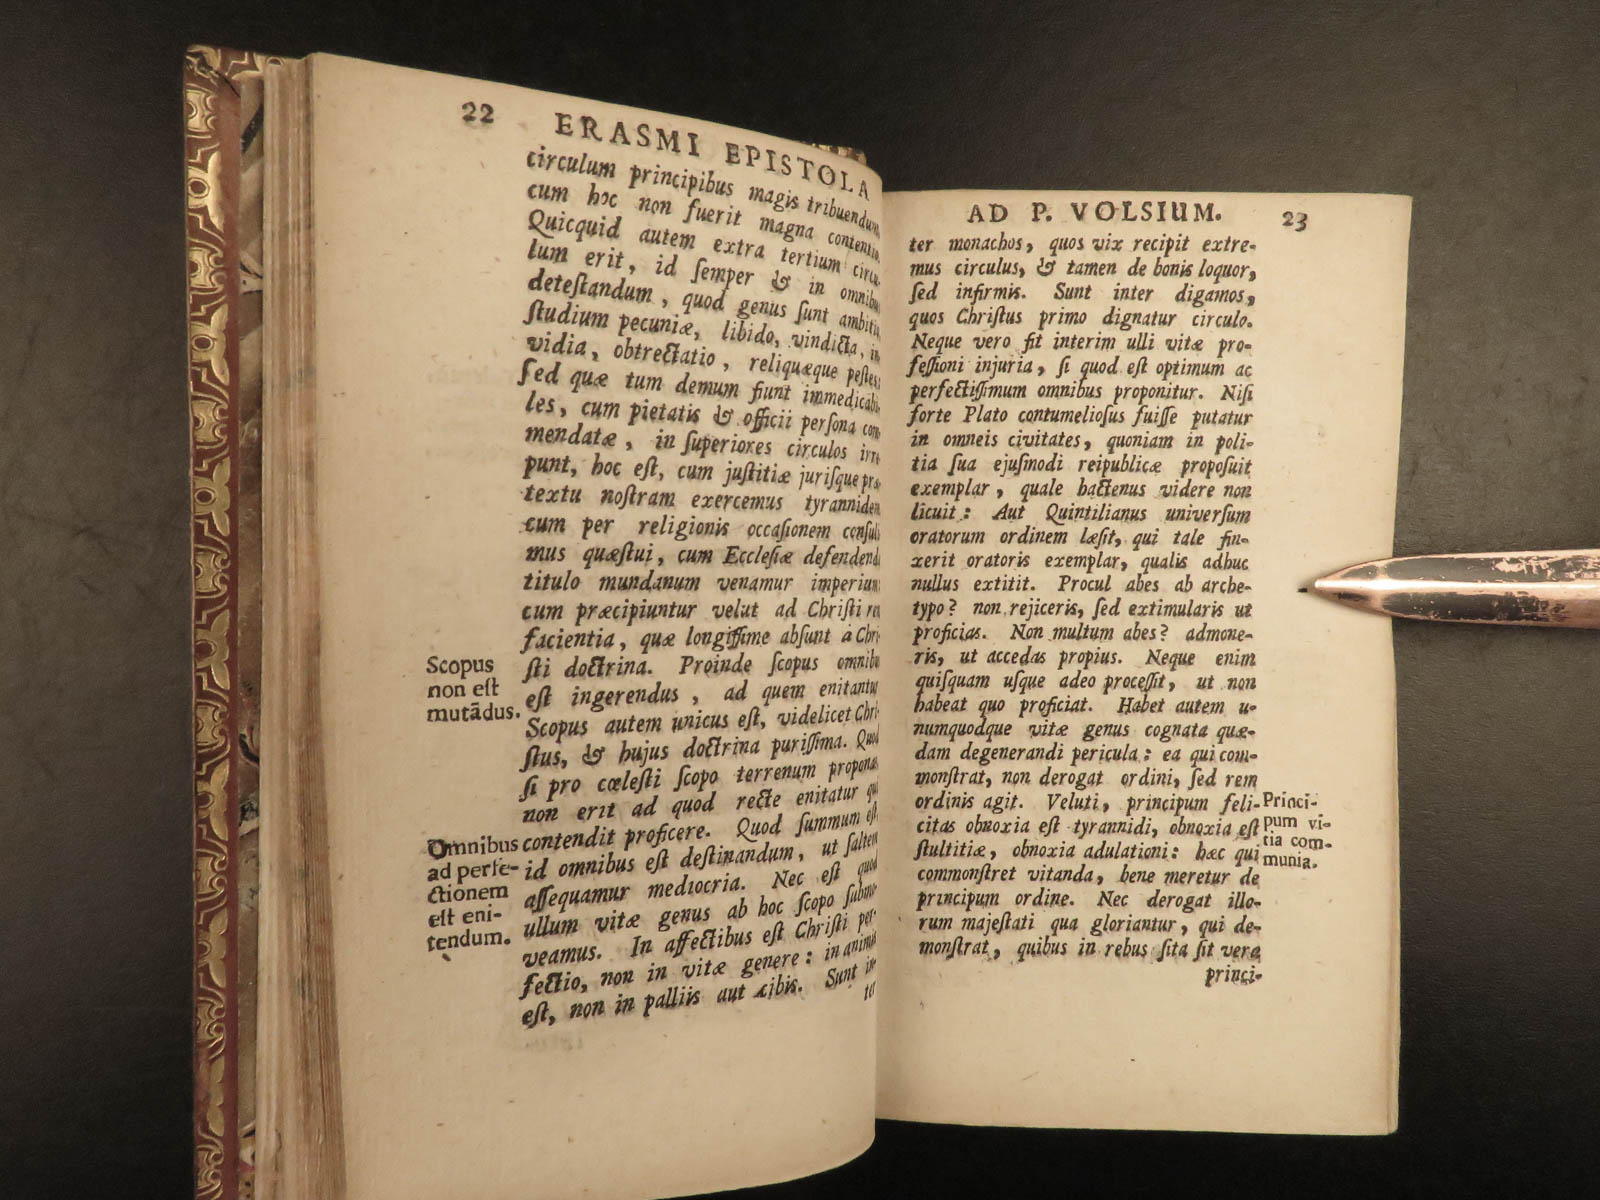 22 ERASMI EPISTOLA
circulum principibus magis tribuendum,
cum hoc non fuerit magna contentio.
Quicquid autem extra tertium circu-
lum erit, id ſemper & in omnibus
deteſtandum, quod genus ſunt ambitio,
ſtudium pecuniæ, libido, vindicta, in-
vidia, obtrectatio, reliquæque peſtes:
ſed quæ tum demum fiunt immedicabi-
les, cum pietatis & officii perſona com-
mendatæ, in ſuperiores circulos irre-
punt, hoc eſt, cum juſtitiæ juriſque præ-
textu noſtram exercemus tyrannidem
cum per religionis occaſionem conſuli-
mus quæſtui, cum Eccleſiæ defendendæ
titulo mundanum venamur imperium:
cum præcipiuntur velut ad Chriſti rem
facientia, quæ longiſſime abſunt a Chri-
ſti doctrina. Proinde ſcopus omnibus
eſt ingerendus, ad quem enitantur
Scopus autem unicus eſt, videlicet Chri-
ſtus, & hujus doctrina puriſſima. Quod
ſi pro cœleſti ſcopo terrenum proponas
non erit ad quod recte enitatur qui
contendit proficere. Quod ſummum eſt
id omnibus eſt deſtinandum, ut ſaltem
aſſequamur mediocria. Nec eſt quod
ullum vitæ genus ab hoc ſcopo ſubmo-
veamus. In affectibus eſt Chriſti per-
fectio, non in vitæ genere: in animis
eſt, non in palliis aut cibis. Sunt in-
ter
Scopus
non eſt
mutādus.
Omnibus
ad perfe-
ctionem
eſt eni-
tendum.
AD P. VOLSIUM. 23
ter monachos, quos vix recipit extre-
mus circulus, & tamen de bonis loquor,
ſed infirmis. Sunt inter digamos,
quos Chriſtus primo dignatur circulo.
Neque vero fit interim ulli vitæ pro-
feſſioni injuria, ſi quod eſt optimum ac
perfectiſſimum omnibus proponitur. Niſi
forte Plato contumelioſus fuiſſe putatur
in omneis civitates, quoniam in poli-
tia ſua ejuſmodi reipublicæ propoſuit
exemplar, quale hactenus videre non
licuit: Aut Quintilianus univerſum
oratorum ordinem læſit, qui tale fin-
xerit oratoris exemplar, qualis adhuc
nullus extitit. Procul abes ab arche-
typo? non rejiceris, ſed extimularis ut
proficias. Non multum abes? admone-
ris, ut accedas propius. Neque enim
quiſquam uſque adeo proceſſit, ut non
habeat quo proficiat. Habet autem u-
numquodque vitæ genus cognata quæ-
dam degenerandi pericula: ea qui com-
monſtrat, non derogat ordini, ſed rem
ordinis agit. Veluti, principum feli-
citas obnoxia eſt tyrannidi, obnoxia eſt
ſtultitiæ, obnoxia adulationi: hæc qui
commonſtret vitanda, bene meretur de
principum ordine. Nec derogat illo-
rum majeſtati qua gloriantur, qui de-
monſtrat, quibus in rebus ſita ſit vera
princi-
Princi-
pum vi-
tia com-
munia.